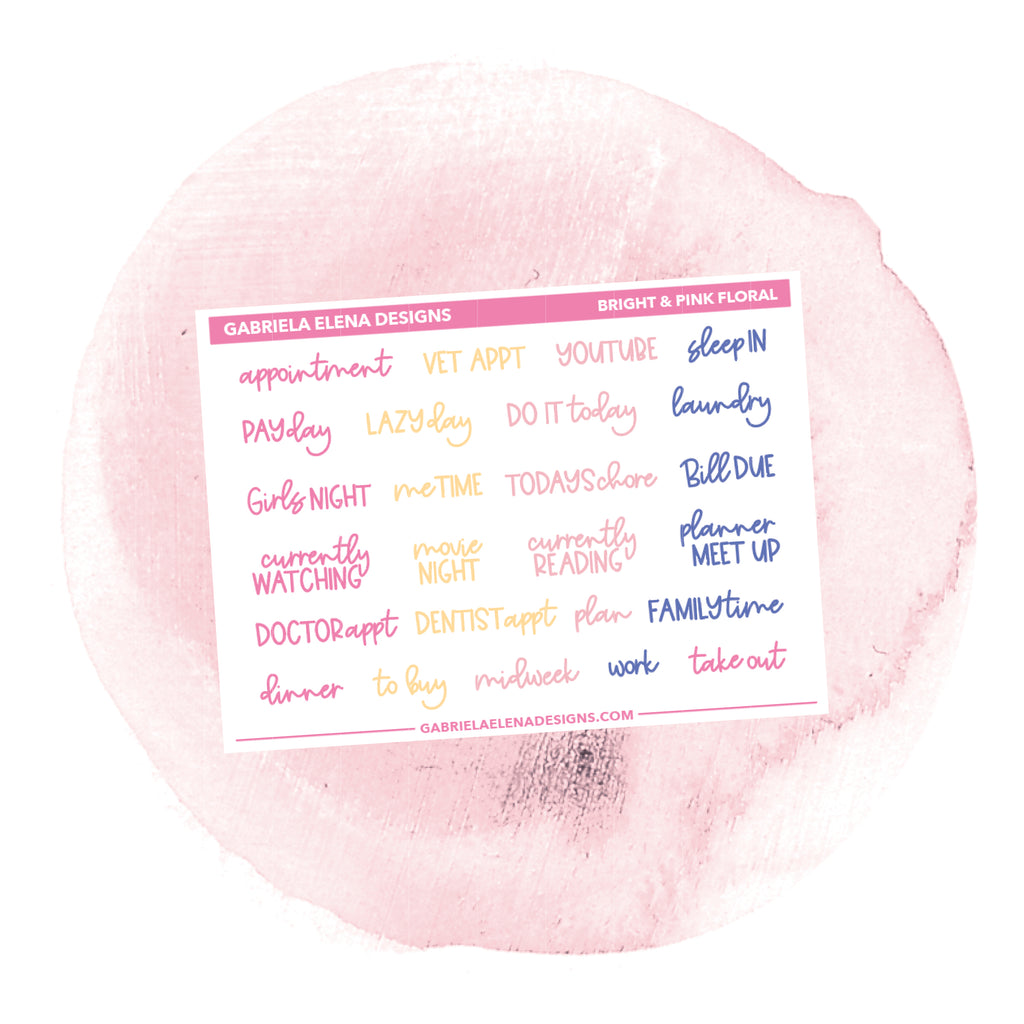 GABRIELA ELENA DESIGNS BRIGHT & PINK FLORAL
appointment VET APPT YOUTUBE sleep IN
PAY day LAZY day DO IT today laundry
Girls NIGHT me TIME TODAYS chore Bill DUE
currently WATCHING movie NIGHT currently READING planner MEET UP
DOCTOR appt DENTIST appt plan FAMILY time
dinner to buy midweek work take out
GABRIELAELENADESIGNS.COM